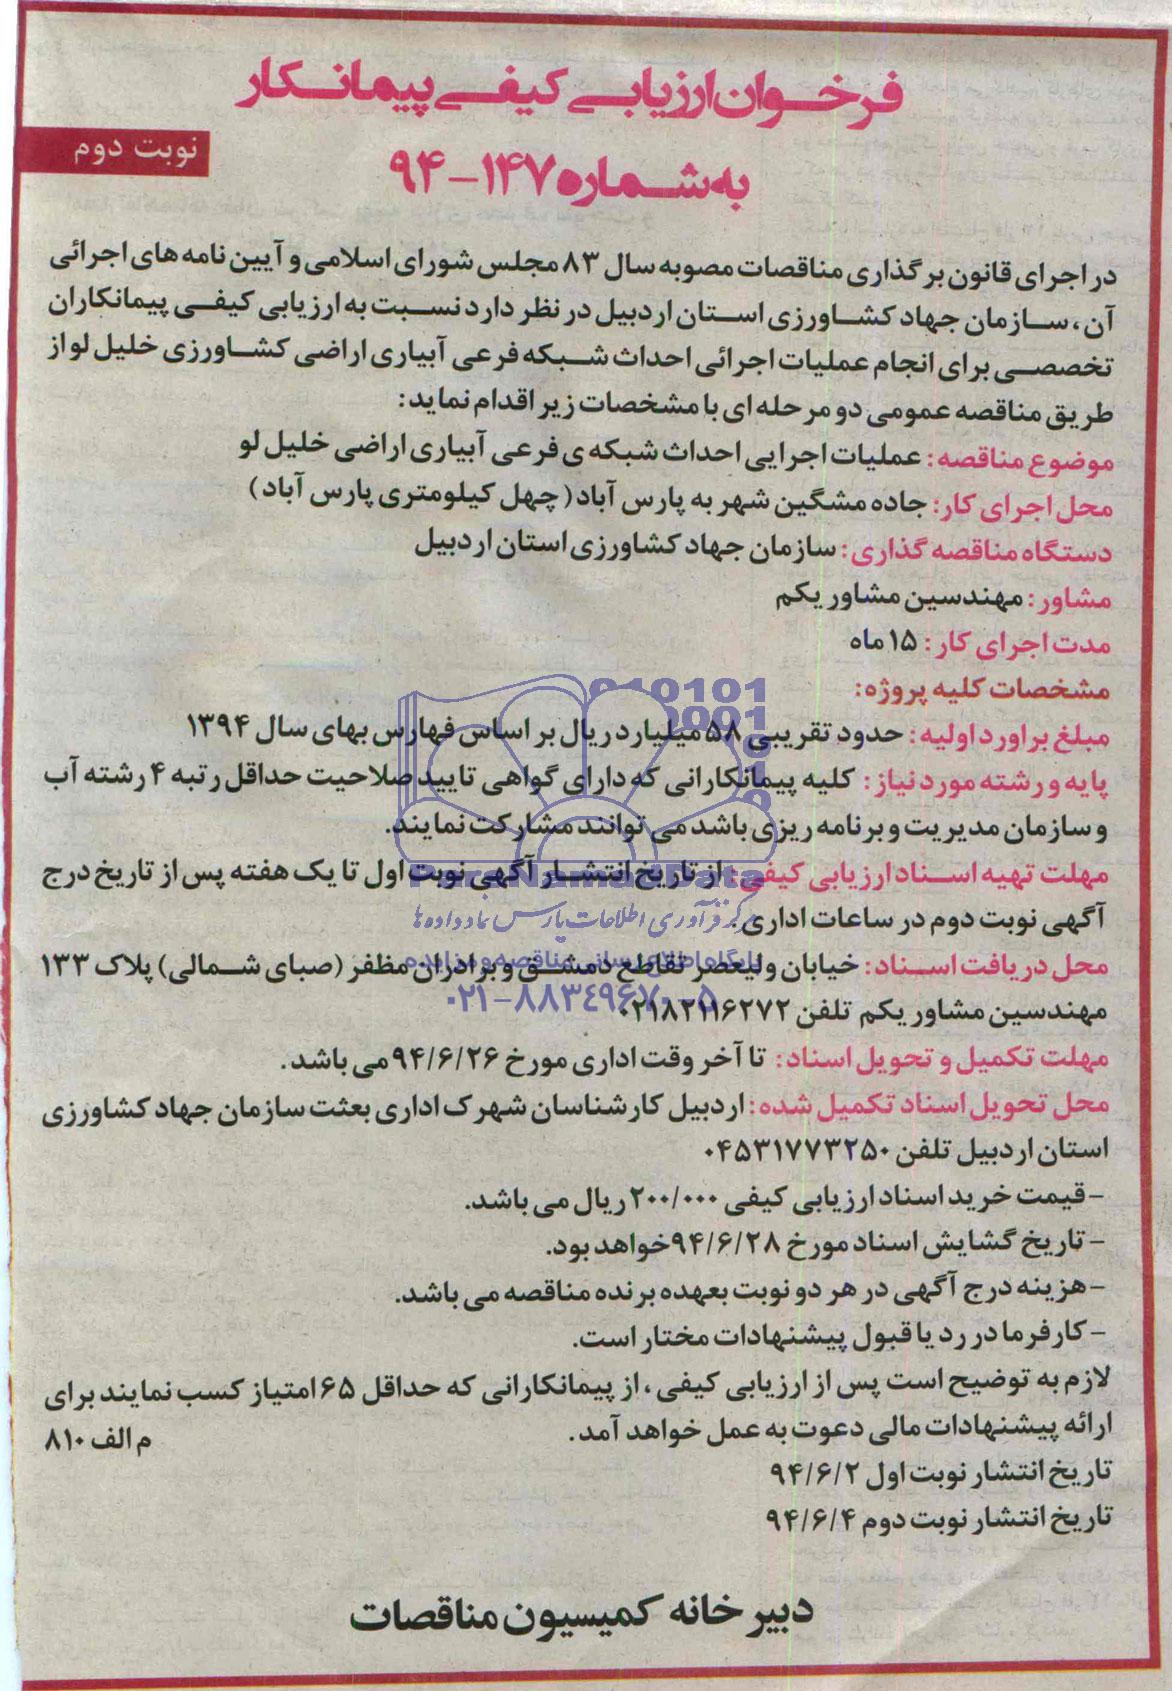 فرخوان ارزیابی کیفی پیمانکار
نوبت دوم
به شماره ۱۴۷-۹۴
در اجرای قانون برگذاری مناقصات مصوبه سال ۸۳ مجلس شورای اسلامی و آیین نامه های اجرائی
آن، سازمان جهاد کشاورزی استان اردبیل در نظر دارد نسبت به ارزیابی کیفی پیمانکاران
تخصصی برای انجام عملیات اجرائی احداث شبکه فرعی آبیاری اراضی کشاورزی خلیل لو از
طریق مناقصه عمومی دو مرحله ای با مشخصات زیر اقدام نماید:
موضوع مناقصه: عملیات اجرایی احداث شبکه ی فرعی آبیاری اراضی خلیل لو
محل اجرای کار: جاده مشگین شهر به پارس آباد (چهل کیلومتری پارس آباد)
دستگاه مناقصه گذاری: سازمان جهاد کشاورزی استان اردبیل
مشاور: مهندسین مشاور یکم
مدت اجرای کار: ۱۵ ماه
مشخصات کلیه پروژه:
مبلغ براورد اولیه: حدود تقریبی ۵۸ میلیارد ریال بر اساس فهارس بهای سال ۱۳۹۴
پایه و رشته مورد نیاز: کلیه پیمانکارانی که دارای گواهی تایید صلاحیت حداقل رتبه ۴ رشته آب
و سازمان مدیریت و برنامه ریزی باشد می توانند مشارکت نمایند.
مهلت تهیه اسناد ارزیابی کیفی: از تاریخ انتشار آگهی نوبت اول تا یک هفته پس از تاریخ درج
آگهی نوبت دوم در ساعات اداری.
مرکز فرآوری اطلاعات پارس نماد داده ها
محل دریافت اسناد: خیابان ولیعصر تقاطع دمشق و برادران مظفر (صبای شمالی) پلاک ۱۳۳
پایگاه اطلاع رسانی مناقصه و مزایده
مهندسین مشاور یکم تلفن ۰۲۱۸۲۱۱۶۲۷۲
۰۲۱-۸۸۳۴۹۶۷۰-۵
مهلت تکمیل و تحویل اسناد: تا آخر وقت اداری مورخ ۹۴/۶/۲۶ می باشد.
محل تحویل اسناد تکمیل شده: اردبیل کارشناسان شهرک اداری بعثت سازمان جهاد کشاورزی
استان اردبیل تلفن ۰۴۵۳۱۷۷۳۲۵۰
-قیمت خرید اسناد ارزیابی کیفی ۲۰۰/۰۰۰ ریال می باشد.
- تاریخ گشایش اسناد مورخ ۹۴/۶/۲۸ خواهد بود.
-هزینه درج آگهی در هر دو نوبت بعهده برنده مناقصه می باشد.
- کارفرما در رد یا قبول پیشنهادات مختار است.
لازم به توضیح است پس از ارزیابی کیفی، از پیمانکارانی که حداقل ۶۵ امتیاز کسب نمایند برای
ارائه پیشنهادات مالی دعوت به عمل خواهد آمد.
م الف ۸۱۰
تاریخ انتشار نوبت اول ۹۴/۶/۲
تاریخ انتشار نوبت دوم ۹۴/۶/۴
دبیر خانه کمیسیون مناقصات